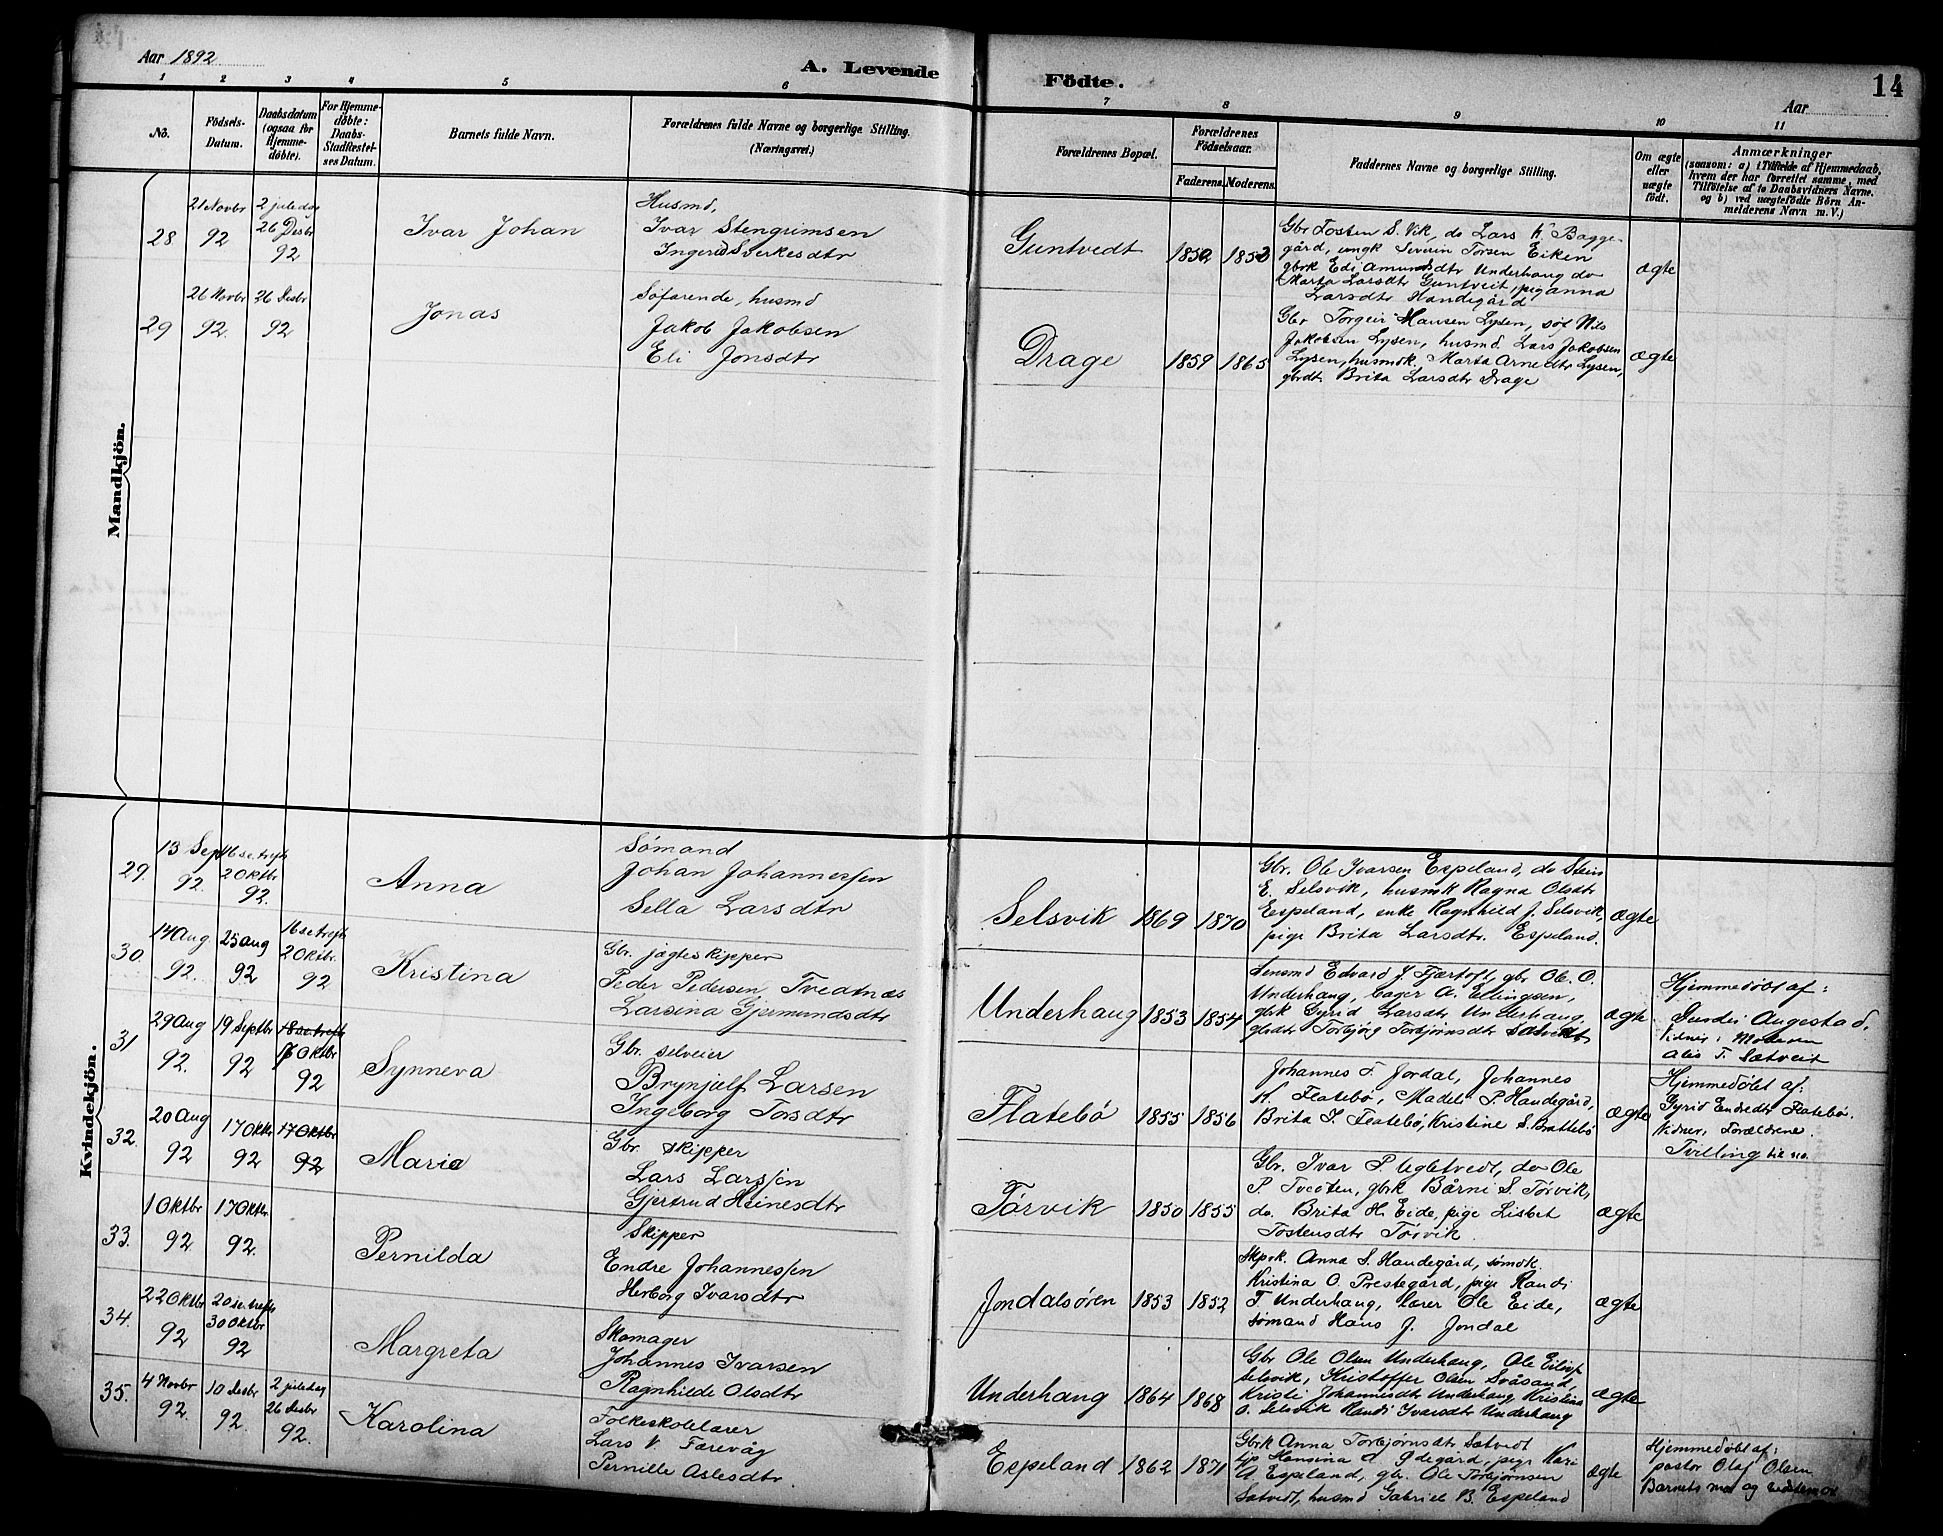 Aar 1892
A. Levende Födte.
14
Aar
1 2 3 4 5 6 7 8 9 10 11
No.
Födsels-Datum.
Daabsdatum (ogsaa for Hjemme-döbte).
For Hjemme-döbte: Daabs-Stadfæstel-ses Datum.
Barnets fulde Navn.
Forældrenes fulde Navne og borgerlige Stilling.
(Næringsvei.)
Forældrenes Bopæl.
Forældrenes Födselsaar.
Faderens. Moderens.
Faddernes Navne og borgerlige Stilling.
Om ægte eller uægte födt.
Anmærkninger
(saasom: a) i Tilfælde af Hjemmedaab,
hvem der har forrettet samme, med
Tilföielse af to Daabsvidners Navne.
og b) ved uægtefödte Börn An-
melderens Navn m. V.)
Mandkjön.
28
21 Novbr
92
2 juledag
26 Desbr
92
Ivar Johan
Husmd,
Ivar Stengrimsen
Ingerid Sverkesdtr
Guntvedt
1852 1853
Gbr Tosten S. Vik, do Lars K. Bagge-
gård, ungk Severin Torsen Eiken
gbrk Edi Amundsdtr Underhaug do
Marta Larsdtr Guntveit, pig Anna
Larsdtr Handegård
ægte
29
26 Novbr
92.
26 Desbr
92
Jonas
Søfarende, husmd
Jakob Jakobsen
Eli Jonsdtr
Drage
1859 1865
Gbr Torgeir Hansen Lysen, søf Nils
Jakobsen Lysen, husmd Lars Jakobsen
Lysen, husmdk Marta Arnedtr Lysen,
gbrdt. Brita Larsdtr Drage
ægte
Kvindekjön.
29.
13 Sept
92.
16 se. trefh
2 Oktbr
92.
Anna
Sømand
Johan Johannessen
Sella Larsdtr
Selsvik 1869 1870
Gbr. Ole Ivarsen Espeland, do Stein
E. Selsvik, husmk Ragna Olsdtr
Espeland, enke Ragnhild J. Selsvik,
pige Brita Larsdtr. Espeland.
ægte
30
14 Aug
92.
25 aug
92
16 se. trefh
2 Oktbr.
92
Kristina
Gbr. jægteskipper
Peder Pedersen Tvedtnæs
Larsina Gjermundsdtr
Underhaug 1853 1854
Lensmd Edvard J. Fjærtoft, gbr Ole O.
Underhaug, bager A. Ellingsen,
gbrk Gyrid Larsdtr Underhaug,
gbrdtr Torbjørg Torbjørnsdtr Sætveidt
ægte
Hjemmedøbt af:
Augestad,
Vidner: Moderen
T. Sætveit
31
29 Aug
92.
19 Septbr
92
Oktbr
92
Synneva
Gbr. selveier
Brynjulf Larsen
Ingeborg Torsdtr
Flatebø 1855 1856
Johannes T. Jordal, Johannes
K. Flatebø, Madel P. Handegård,
Brita I. Flatebø, Kristine S. Brattebø
ægte
Hjemmedøbt af:
Gyrid Endredtr Flatebø.
Vidner, Forældrene.
Tvilling til no.
32.
20 Aug
92
17 Oktr
92
17 Oktbr
92
Marie
Gbr. skipper
Lars Larssen
Gjertrud Heinesdtr
Tørvik 1850 1855
Gbr. Ivar P. Ugletvedt, do Ole
P. Tveiten, gbrk Bårni S. Tørvik,
do. Brita H. Eide, pige Lisbet
Tostensdtr Tørvik.
ægte
33.
1 Oktbr
92
17 Oktr
92.
Pernilda
Skipper
Endre Johannessen
Herborg Ivarsdtr
Jondalsøren 1853 1852
Skprk. Anna S. Handegård, sømdk.
Kristina O. Prestegård, pige Randi
T. Underhaug, lærer Ole Eide,
sømand Hans J. Jondal
ægte
34.
22 Oktbr
92
20 se. trefh
30 Oktbr
92
Margreta
Skomager
Johannes Ivarsen
Ragnhilde Olsdtr
Underhaug 1864 1868
Gbr Ole Olsen Underhaug, Ole Eilivs
Selsvik, Kristoffer Olsen Svåsand,
Kristi Johannisdtr Underhaug, Kristina
O. Selsvik Randi Ivarsdtr Underhaug
ægte
35.
4 Novbr
92.
10 Desbr
92.
2 juledag
26 Desbr
92.
Karolina
Folkeskolelærer
Lars V. Færevåg
Pernille Aslesdtr
Espeland 1862 1871
Gbrk Anna Torbjørnsdtr Sætvedt
Hansina A. Ødegård, pige Kari
A. Espeland, gbr. Ole Torbjørnsen
Sætvedt, husmd Gabriel B. Espeland
ægte
Hjemmedøbt af:
pastor Olaf Olsen
Barnets mor og bedstemor